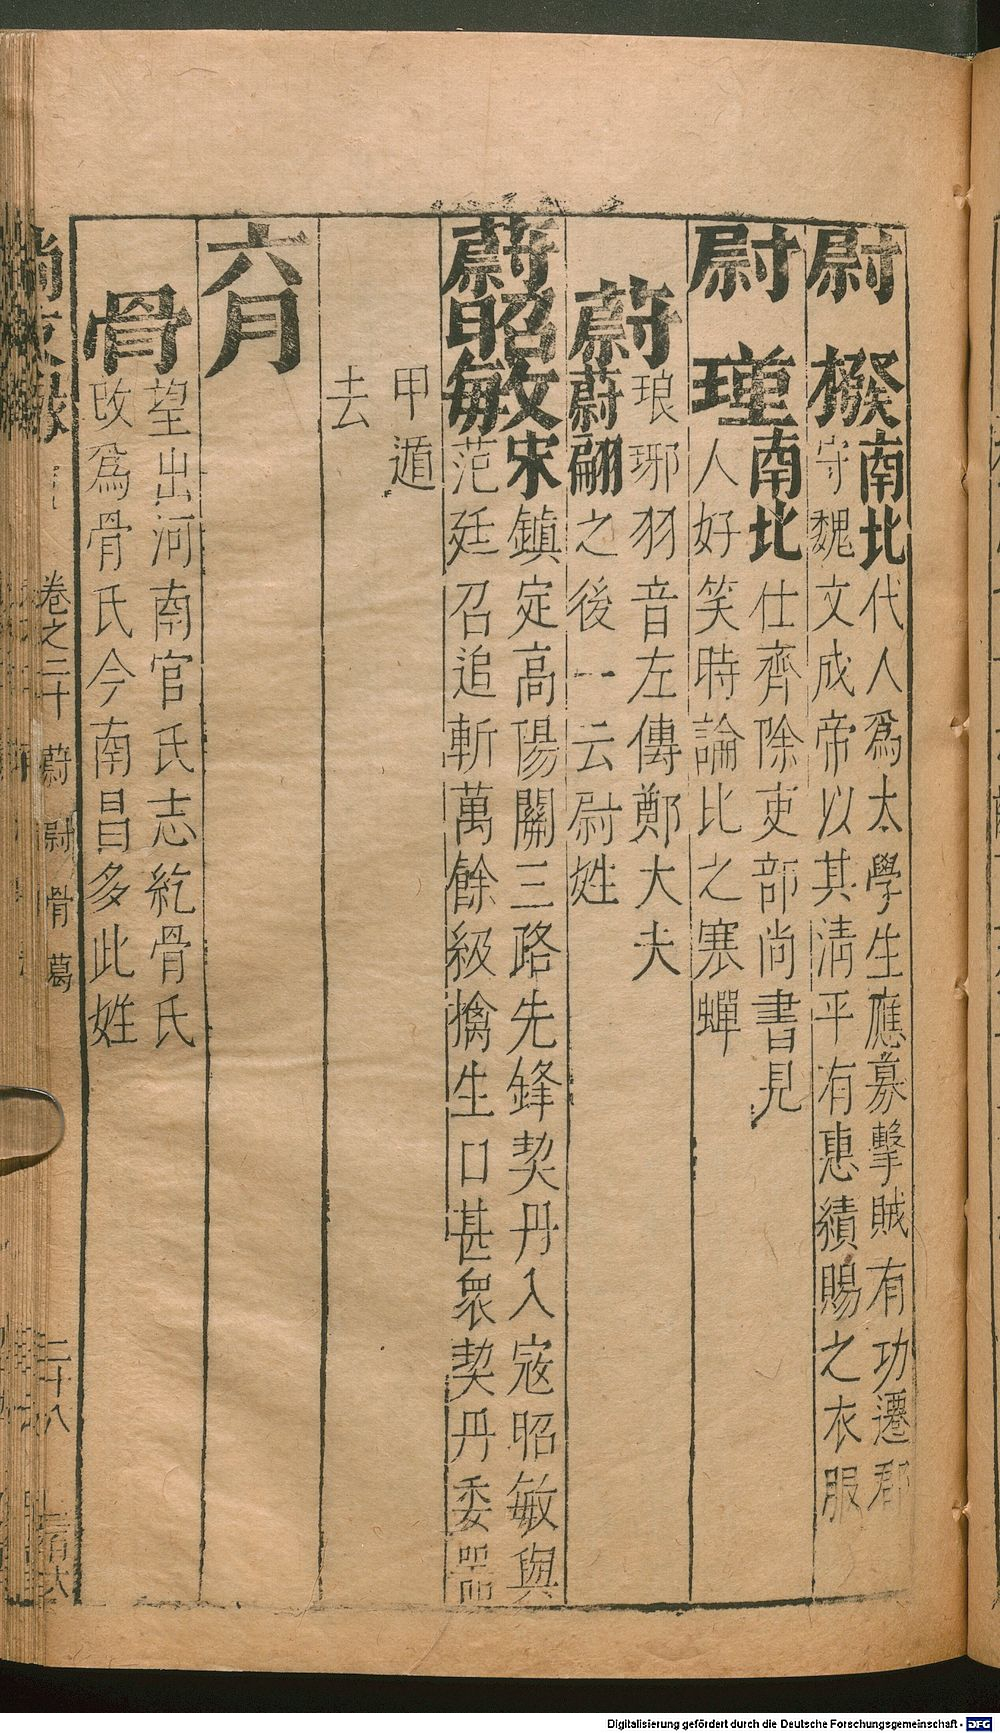 尉撥南北代人為太學生應募擊賊有功遷郡
守魏文成帝以其清平有惠績賜之衣服
尉瑾南北仕齊除吏部尚書見
人好笑時論比之寒蟬
蔚琅琊羽音左傳鄭大夫
蔚翩之後一云尉姓
蔚昭敏宋鎮定高陽關三路先鋒契丹入寇昭敏與
范廷召追斬萬餘級擒生口甚衆契丹委器
甲遁
去
六月
骨望出河南官氏志紇骨氏
改爲骨氏今南昌多此姓
尚友錄
卷之二十
蔚 尉 骨 葛
二十八
Digitalisierung gefördert durch die Deutsche Forschungsgemeinschaft - DFG